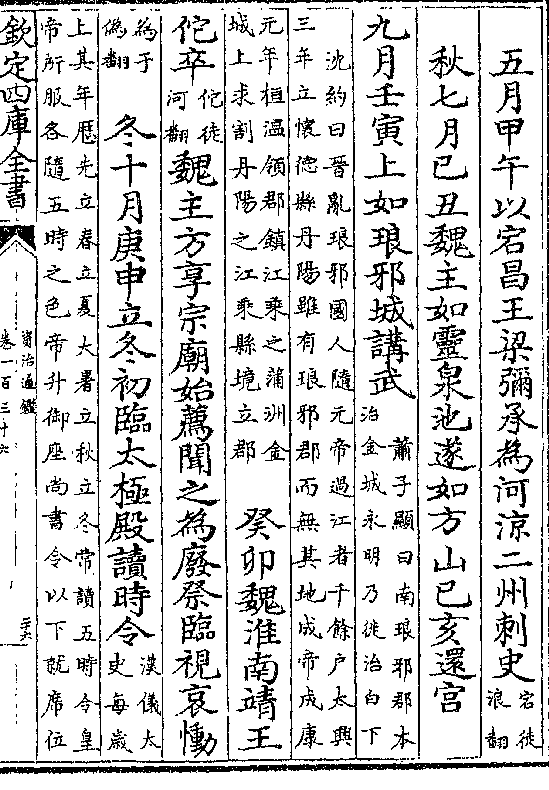 五月甲午以宕昌王梁彌承為河涼二州刺史宕徒
浪翻
秋七月己丑魏主如靈泉池遂如方山己亥還宫
九月壬寅上如琅邪城講武蕭子顯曰南琅邪郡本
治金城永明乃徙治白下
沈約曰晉亂琅邪國人隨元帝過江者千餘户太興
三年立懷德縣丹陽雖有琅邪郡而無其地成帝咸康
元年桓温領郡鎮江乘之蒲洲金
城上求割丹陽之江乘縣境立郡
癸卯魏淮南靖王
佗卒佗徒
河翻
魏主方享宗廟始薦聞之為廢祭臨視哀慟
為于
偽翻
冬十月庚申立冬初臨太極殿讀時令漢儀太
史每歲
上其年厯先立春立夏大暑立秋立冬常讀五時令皇
帝所服各隨五時之色帝升御座尚書令以下就席位
欽定四庫全書
資治通鑑
卷一百三十六